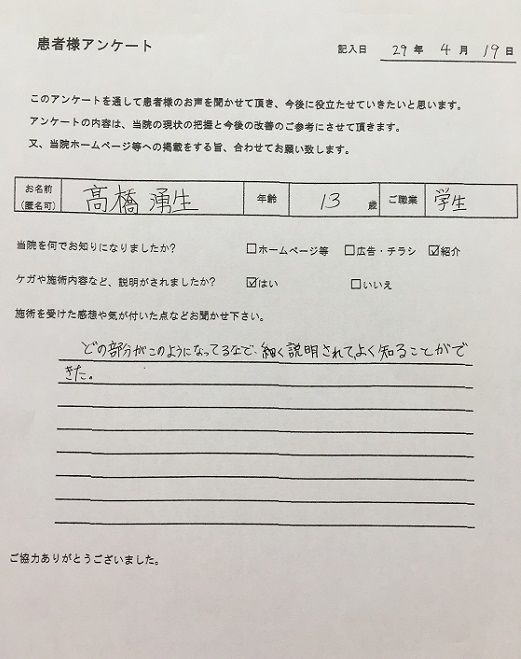 患者様アンケート
記入日 29 年 4 月 19 日
このアンケートを通して患者様のお声を聞かせて頂き、今後に役立たせていきたいと思います。
アンケートの内容は、当院の現状の把握と今後の改善のご参考にさせて頂きます。
又、当院ホームページ等への掲載をする旨、合わせてお願い致します。
お名前(匿名可) 髙橋 湧生 年齢 13 歳 ご職業 学生
当院を何でお知りになりましたか? □ホームページ等 □広告・チラシ ☑紹介
ケガや施術内容など、説明がされましたか? ☑はい □いいえ
施術を受けた感想や気が付いた点などお聞かせ下さい。
どの部分がこのようになってるなで、細く説明されて、よく知ることがで
きた。
ご協力ありがとうございました。